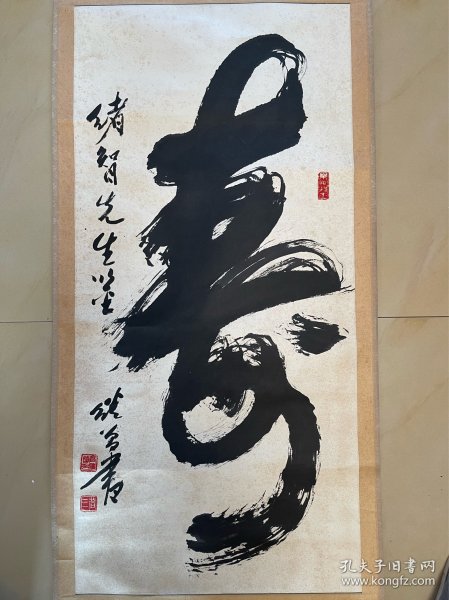 寿
绪智先生鉴
书
孔夫子旧书网
www.kongfz.com